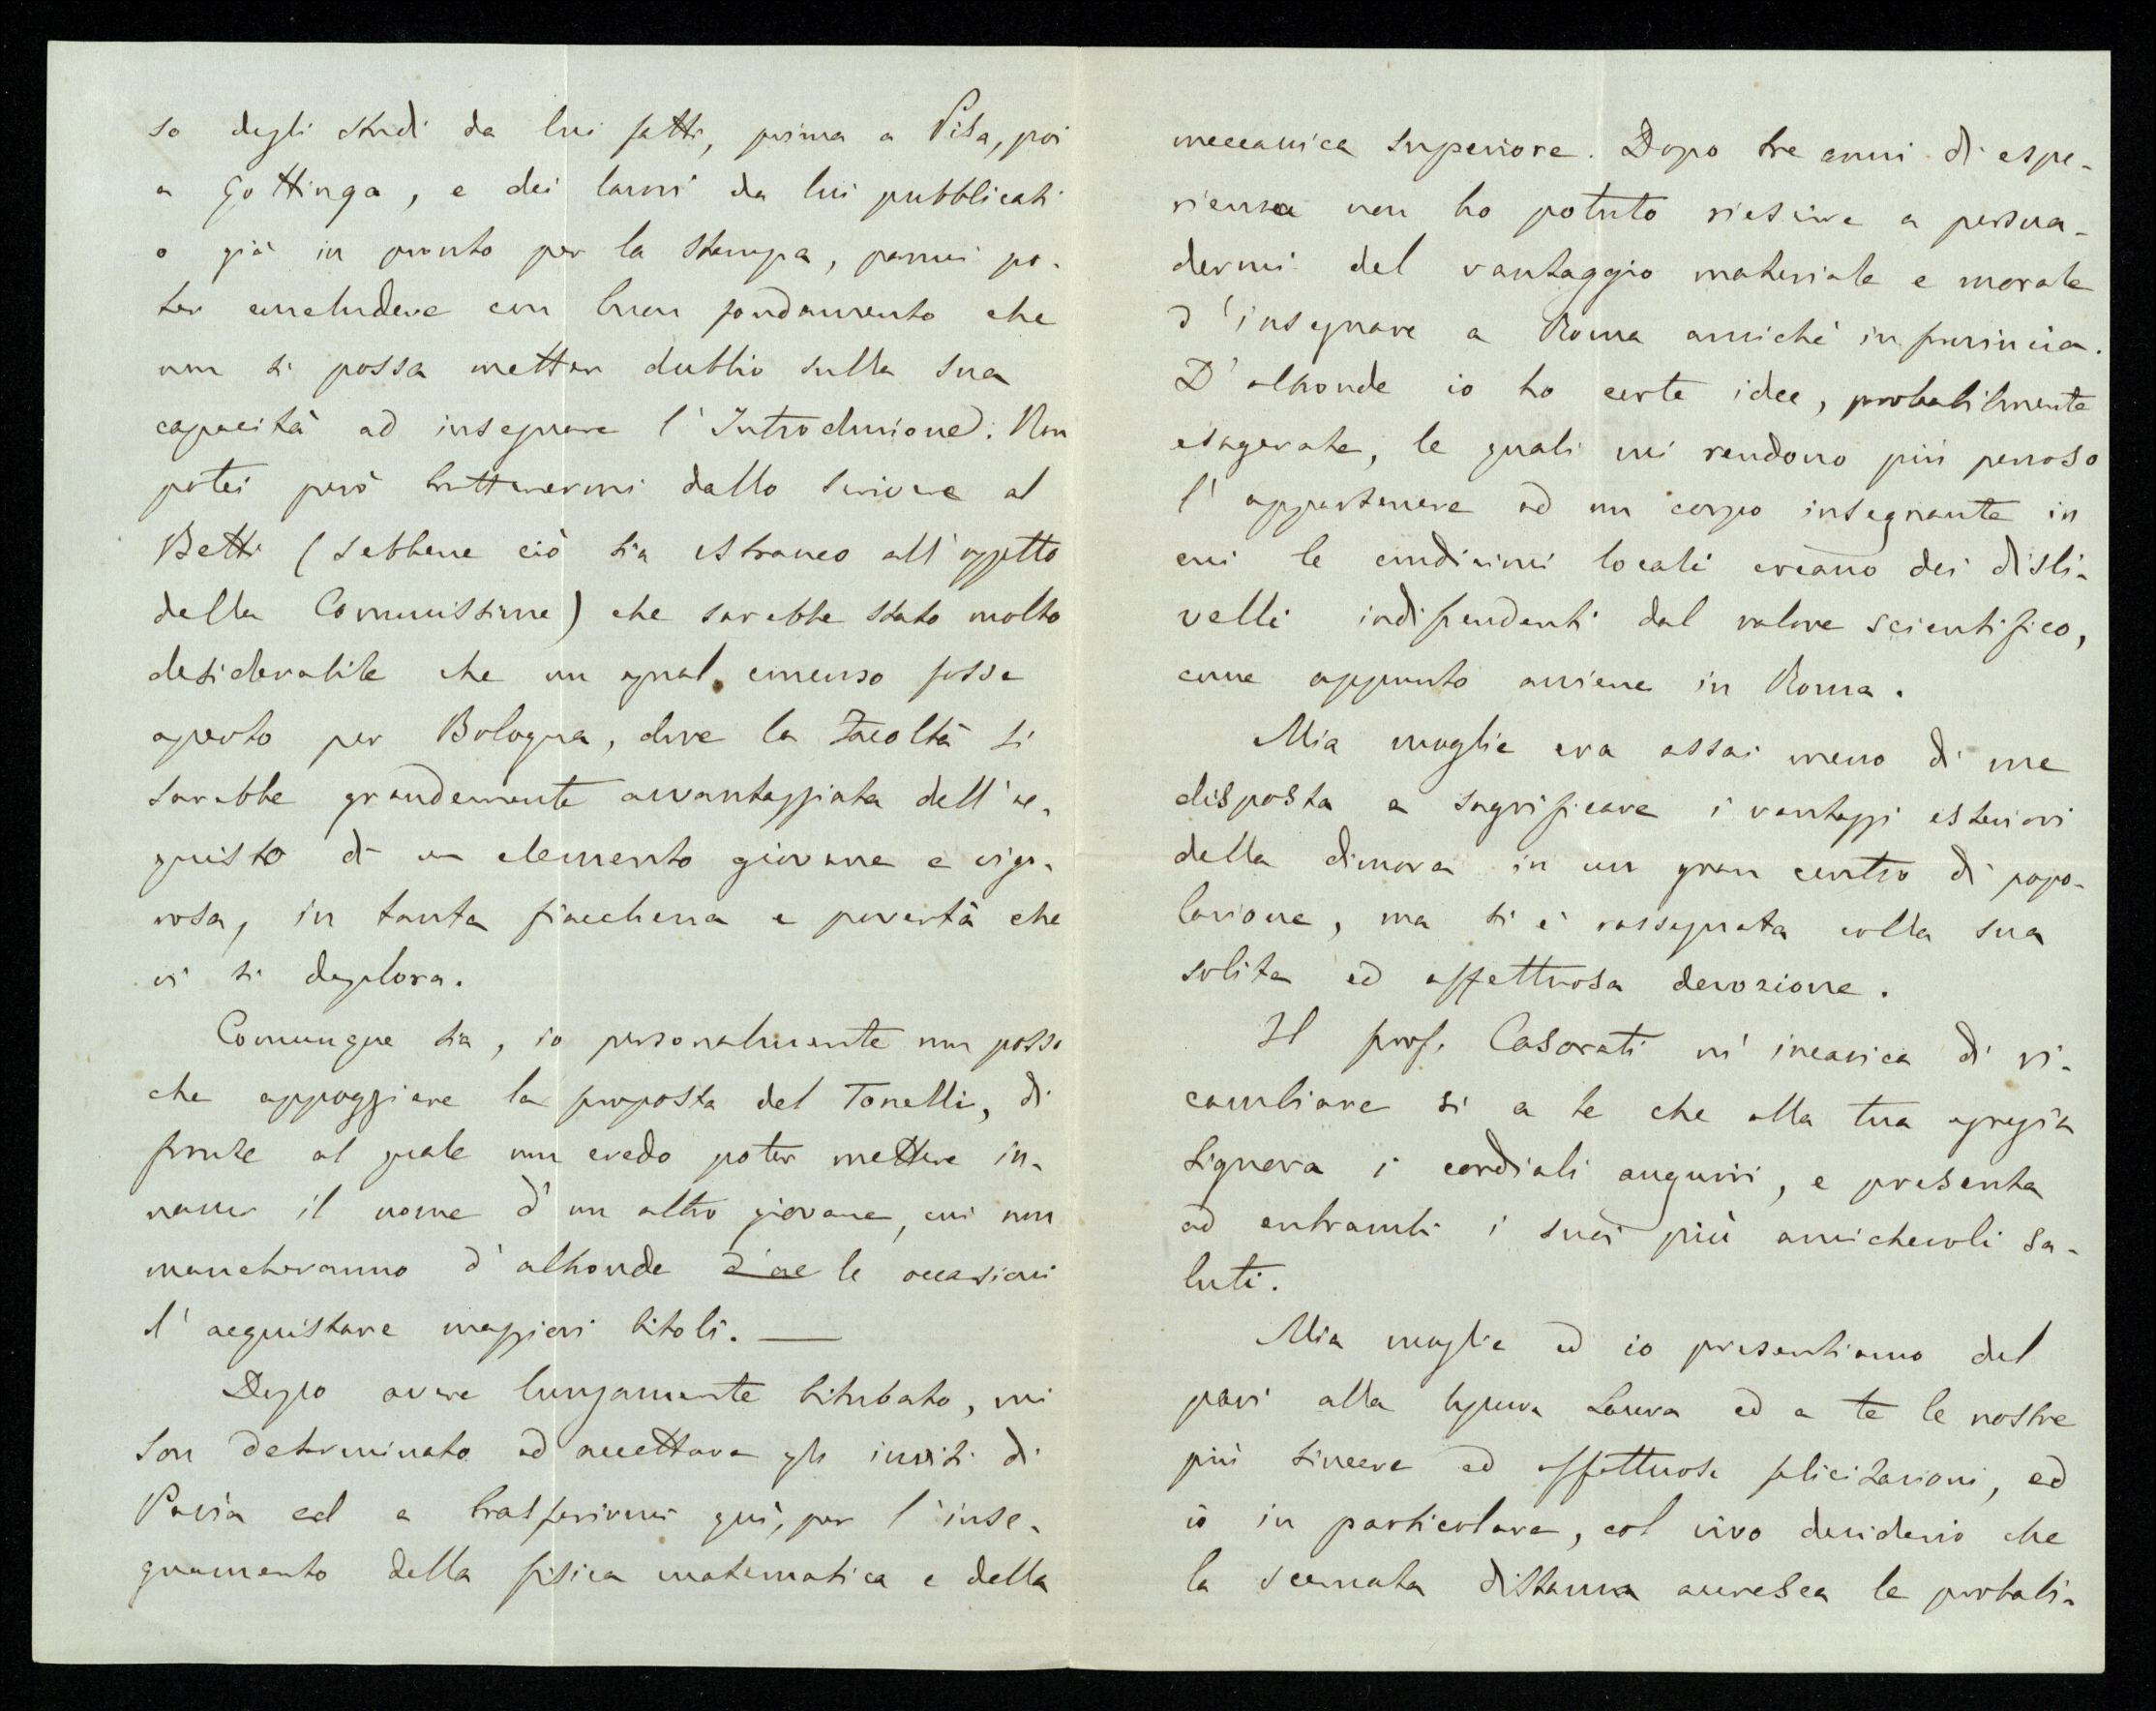 so degli studi da lui fatti, prima a Pisa, poi
a Gottinga, e dei lavori da lui pubblicati
o già in pronto per la stampa, parmi po-
ter concludere con buon fondamento che
non si possa metter dubbio sulla sua
capacità ad insegnare l'Introduzione. Non
potei però trattenermi dallo scrivere al
Betti (sebbene ciò sia estraneo all'oggetto
della Commissione) che sarebbe stato molto
desiderabile che un egual concorso fosse
aperto per Bologna, dove la Facoltà si
sarebbe grandemente avvantaggiata dell'ac-
quisto di un elemento giovane e vigo-
roso, in tanta fiacchezza e povertà che
vi si deplora.
Comunque sia, io personalmente non posso
che appoggiare la proposta del Tonelli, di
fronte al quale non credo poter mettere in-
nanzi il nome d'un altro giovane, cui non
mancheranno d'altronde d'ac le occasioni
d'acquistare maggiori titoli. —
Dopo avere lungamente titubato, mi
son determinato ad accettare gli inviti di
Pavia ed a trasferirmi quì, per l'inse-
gnamento della fisica matematica e della
meccanica superiore. Dopo tre anni di espe-
rienza non ho potuto riescire a persua-
dermi del vantaggio materiale e morale
d'insegnare a Roma anzichè in provincia.
D'altronde io ho certe idee, probabilmente
esagerate, le quali mi rendono più penoso
l'appartenere ad un corpo insegnante in
cui le condizioni locali creano dei disli-
velli indipendenti dal valore scientifico,
come appunto avviene in Roma.
Mia moglie era assai meno di me
disposta a sagrificare i vantaggi esteriori
della dimora in un gran centro di popo-
lazione, ma si è rassegnata colla sua
solita ed affettuosa devozione.
Il prof. Casorati m'incarica di ri-
cambiare sì a te che alla tua egregia
Signora i cordiali augurii, e presenta
ad entrambi i suoi più amichevoli sa-
luti.
Mia moglie ed io presentiamo del
pari alla Signora Laura ed a te le nostre
più sincere ed affettuose felicitazioni, ed
io in particolare, col vivo desiderio che
la scemata distanza accresca le probabi-